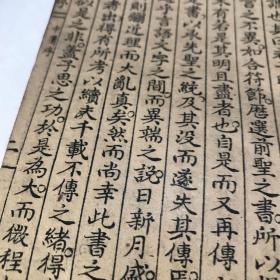 言之不異如合符節歷選前聖之書所
有若是其明且盡者也自是而又再傳
書以承先聖之統及其没而遂失其傳焉
乎言語文字之間而異端之說日新月盛
則彌近理而大亂真矣然而尚幸此書之
者出得有所考以續夫千載不傳之緒得
似是之非蓋子思之功於是為大而微程